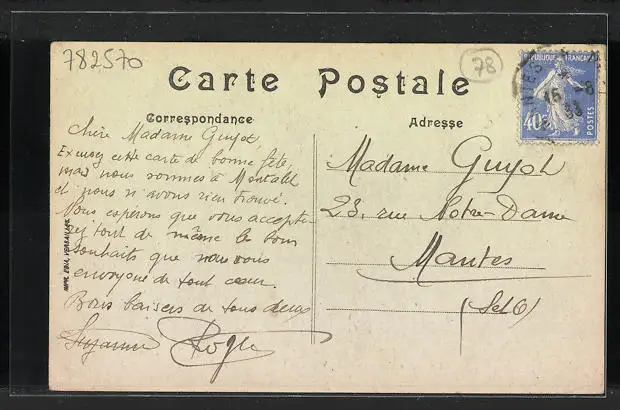 782570
78
Carte Postale
Correspondance
Adresse
REPUBLIQUE FRANCAISE
40c
POSTES
15 -8
33
Chère Madame Guyot,
Excusez cette carte de bonne fête,
mais nous sommes à Montalet
et nous n'avons rien trouvé.
Vous espérons que vous accepte-
rez tout de même le bons
souhaits que nous vous
envoyons de tout cœur.
Bons baisers de tous deux
Suzanne Rogle
Madame Guyot
23, rue Notre-Dame
Mantes
(SetO)
IMPR. EDIA, VERSAILLES